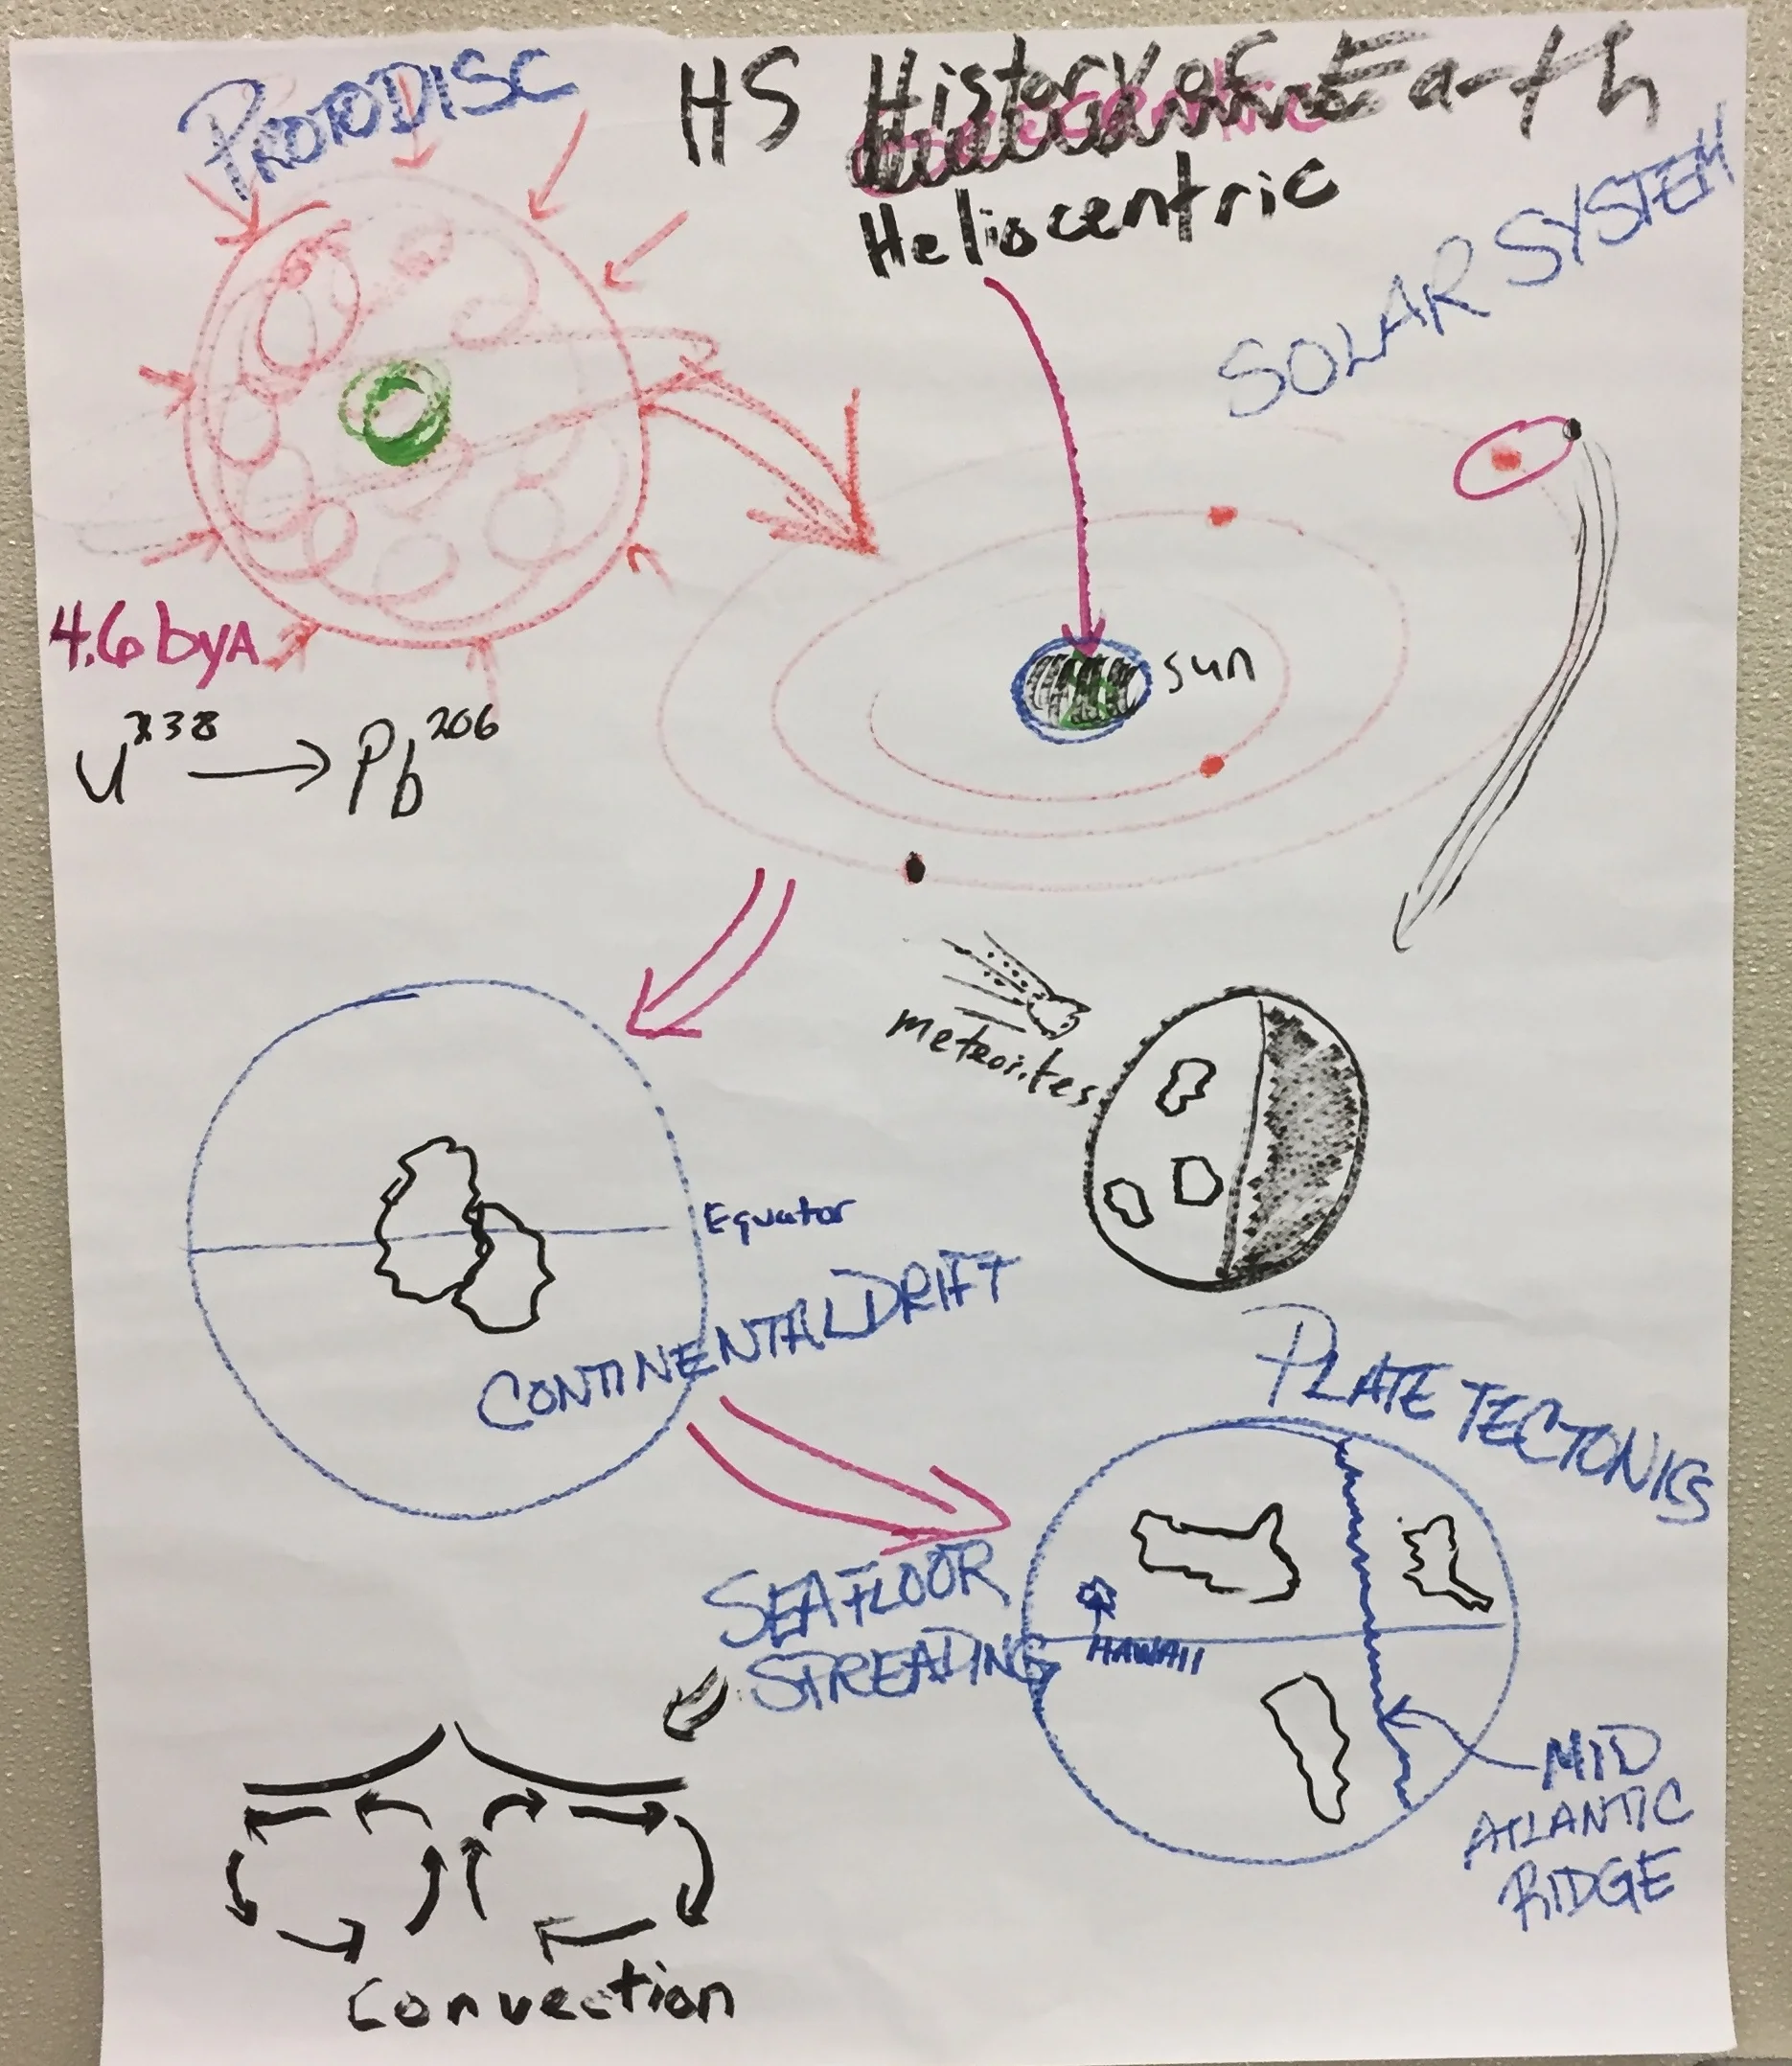 PROTODISC
HS History of Earth
Heliocentric
SOLAR SYSTEM
4.6 byA
U²³⁸ → Pb²⁰⁶
sun
meteorites
Equator
CONTINENTAL DRIFT
PLATE TECTONICS
SEAFLOOR
SPREADING
HAWAII
MID
ATLANTIC
RIDGE
Convection